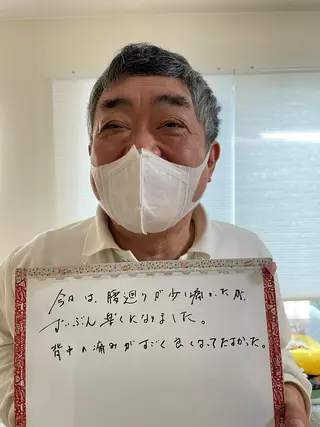 今日は、腰廻りが少し痛かったが、
ずいぶん楽になりました。
背中の痛みがすごく良くなってたすかった。